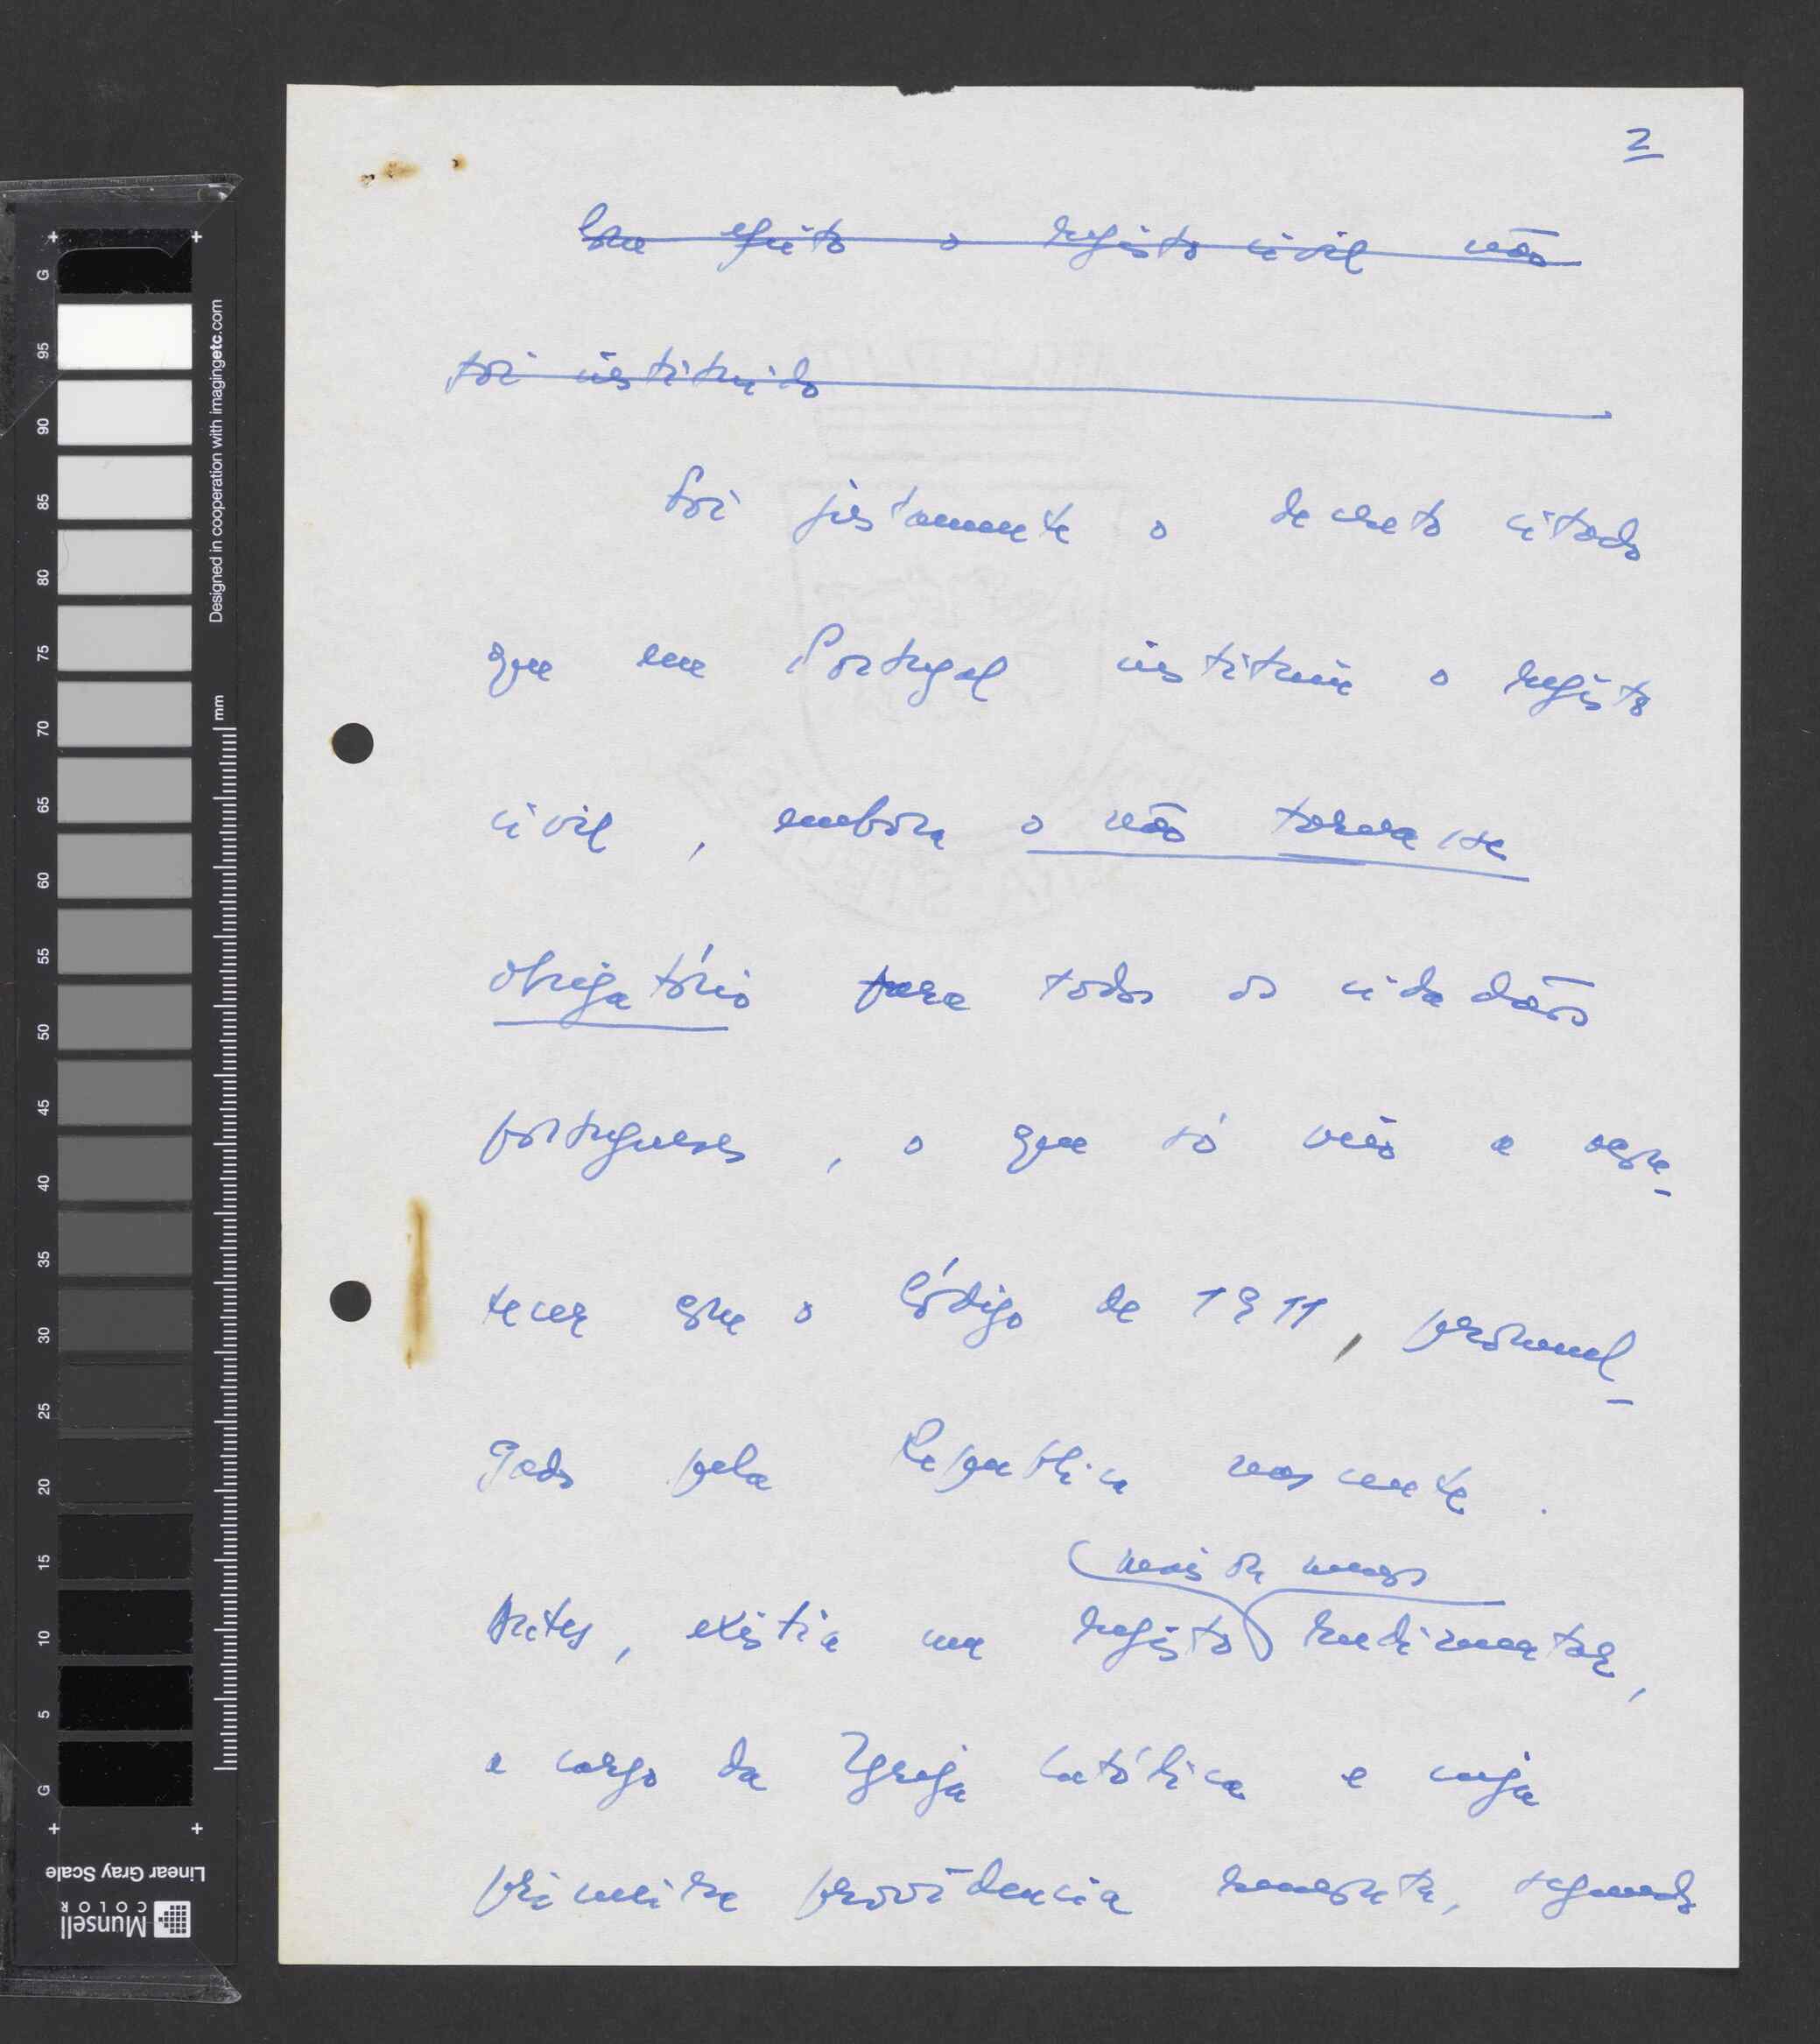 2
Com efeito o registo civil não
foi instituido
Foi justamente o decreto citado
que em Portugal instituiu o registo
civil, embora o não tornasse
obrigatório para todos os cidadãos
portugueses, o que só veio a acon-
tecer com o Código de 1911, promul-
gado pela Republica nascente.
mais ou menos
Antes, existia um registo rudimentar,
a cargo da Igreja Católica e cuja
primeira providencia remonta, segundo
Designed in cooperation with imagingetc.com
mm
G
95
90
85
80
75
70
65
60
55
50
45
40
35
30
25
20
15
10
5
G
Linear Gray Scale
Munsell
COLOR